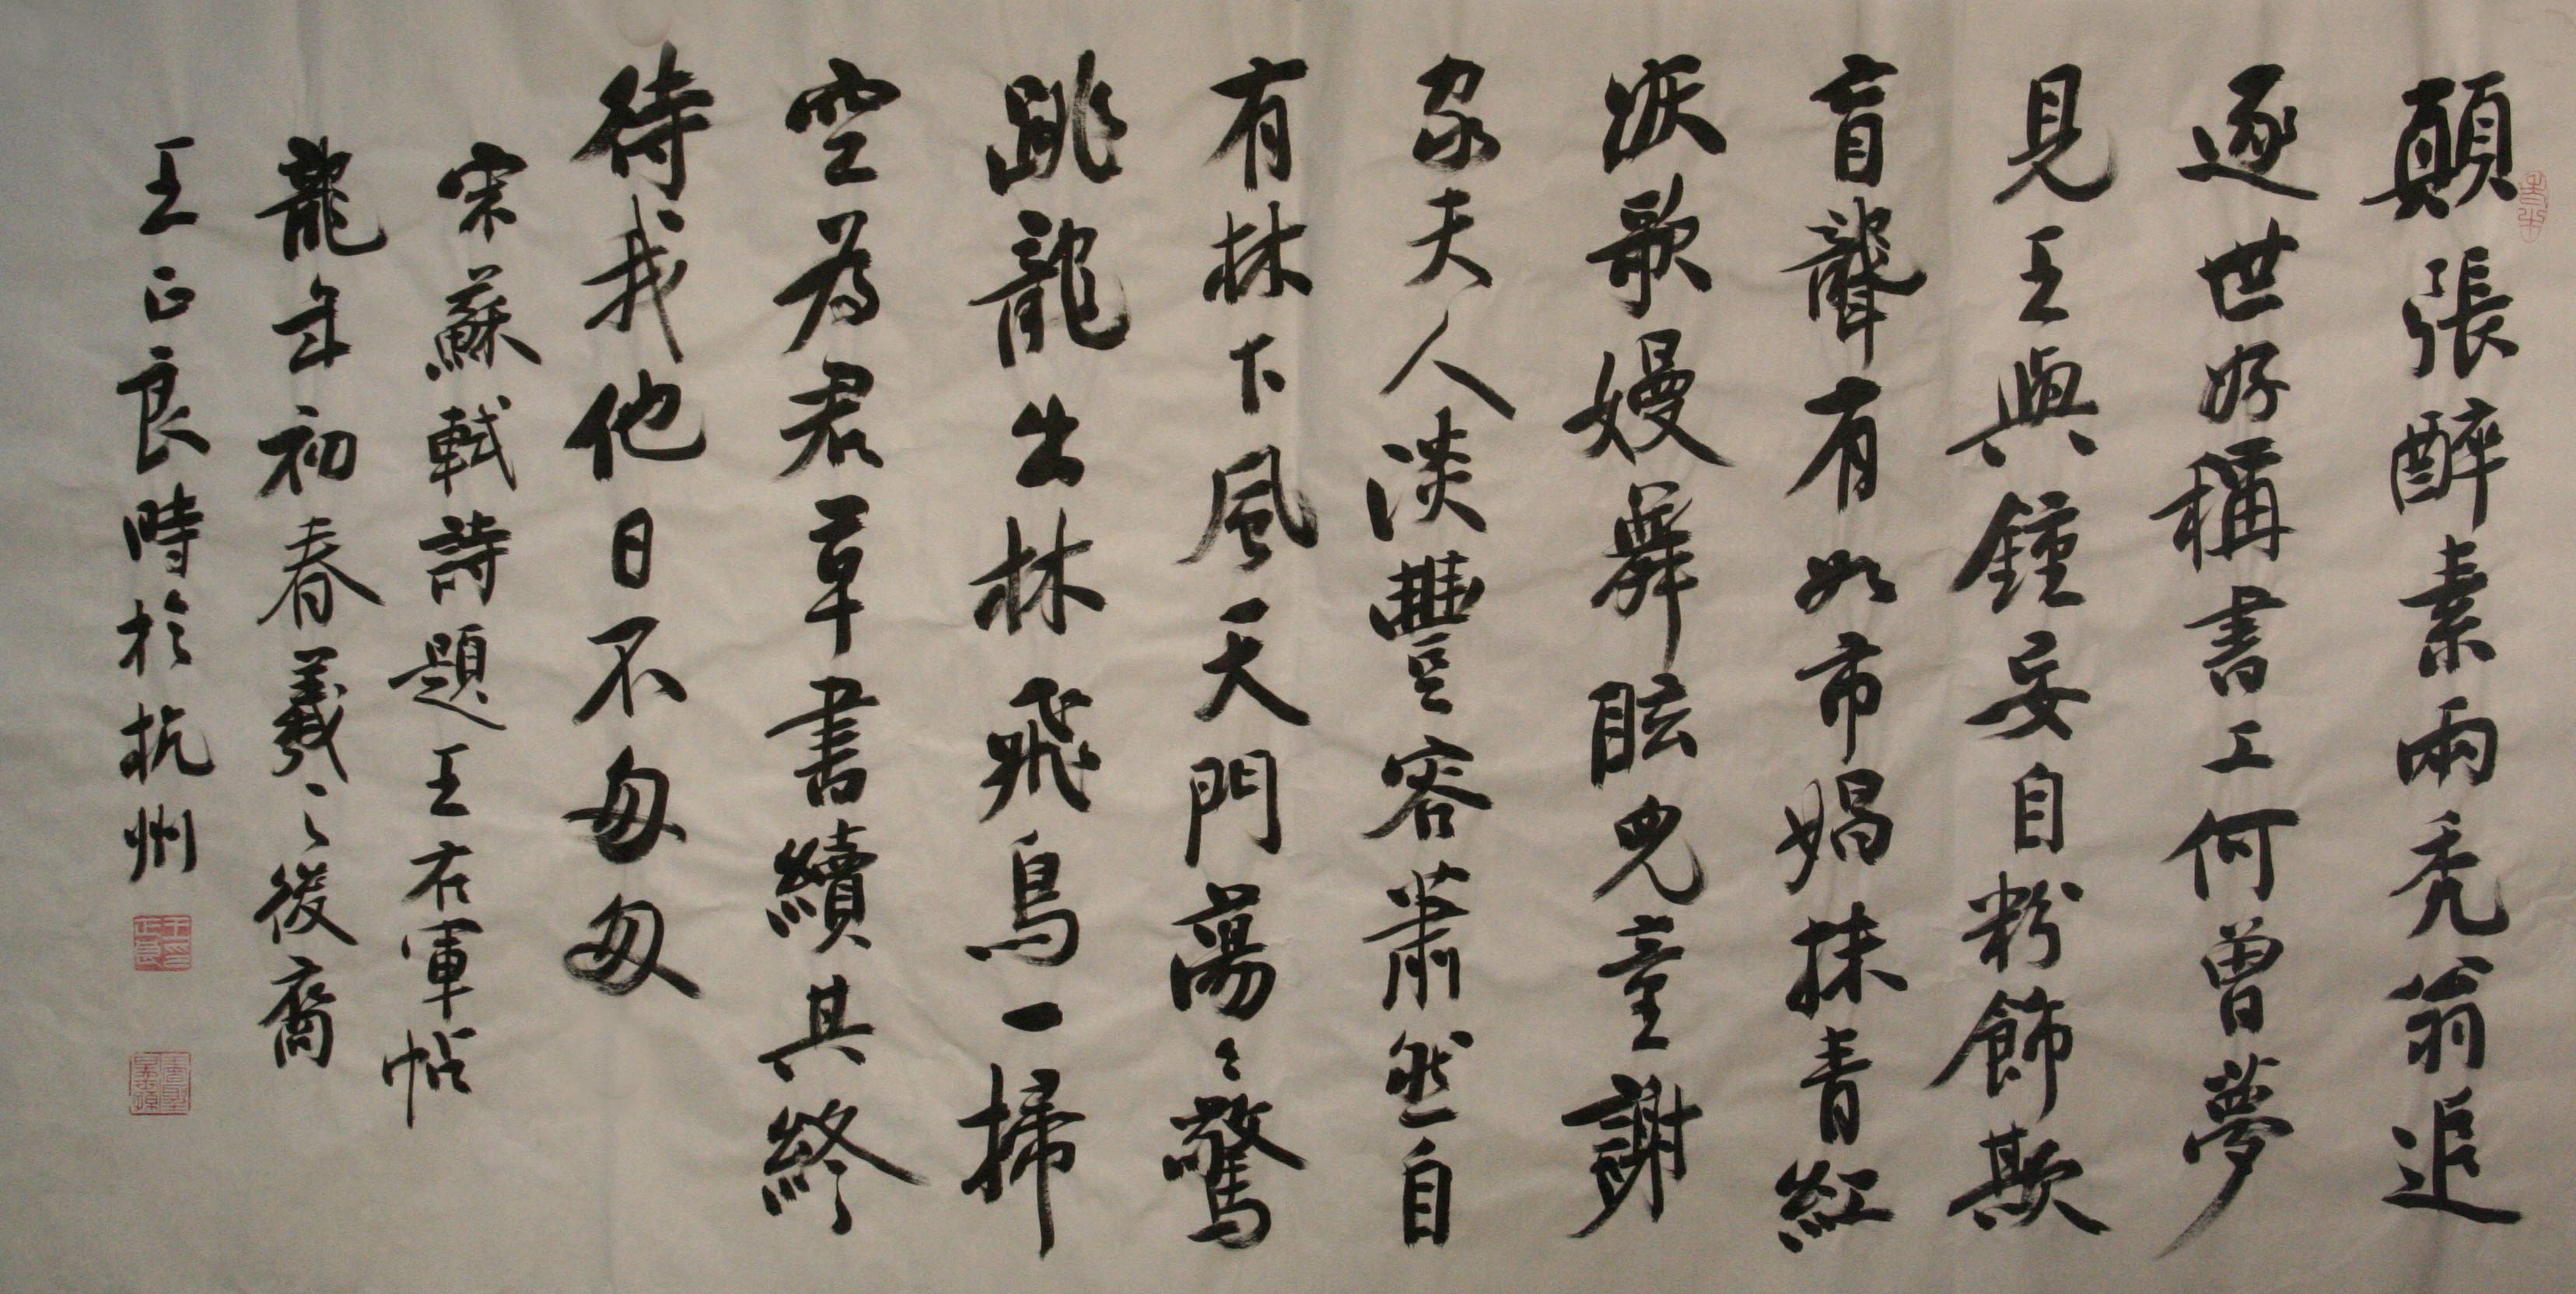 顛張醉素兩禿翁追
逐世好稱書工何曾夢
見王與鍾妄自粉飾欺
盲聾有如市娼抹青紅
妖歌嫚舞眩兒童謝
家夫人淡豐容蕭然自
有林下風天門蕩〻驚
跳龍出林飛鳥一掃
空為君草書續其終
待我他日不匆匆
宋蘇軾詩題王右軍帖
龍年初春羲〻後裔
王正良時於杭州